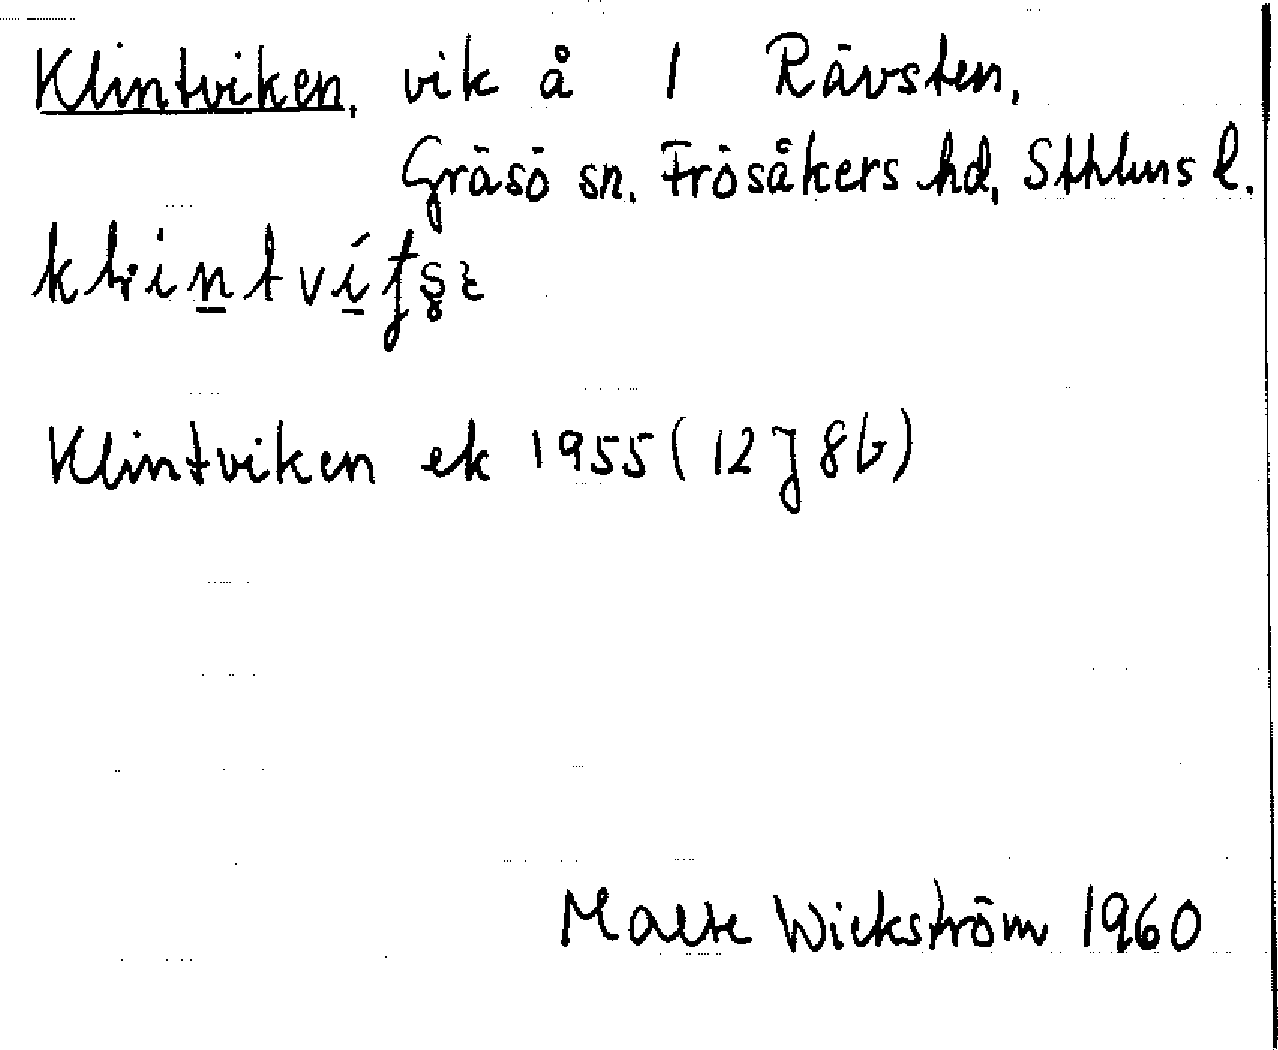 Klintviken, vik å 1 Rävsten,
Gräsö sn. Frösåkers hd, Sthlms l.
Klintviken ek 1955 (12J 8b)
Malte Wickström 1960